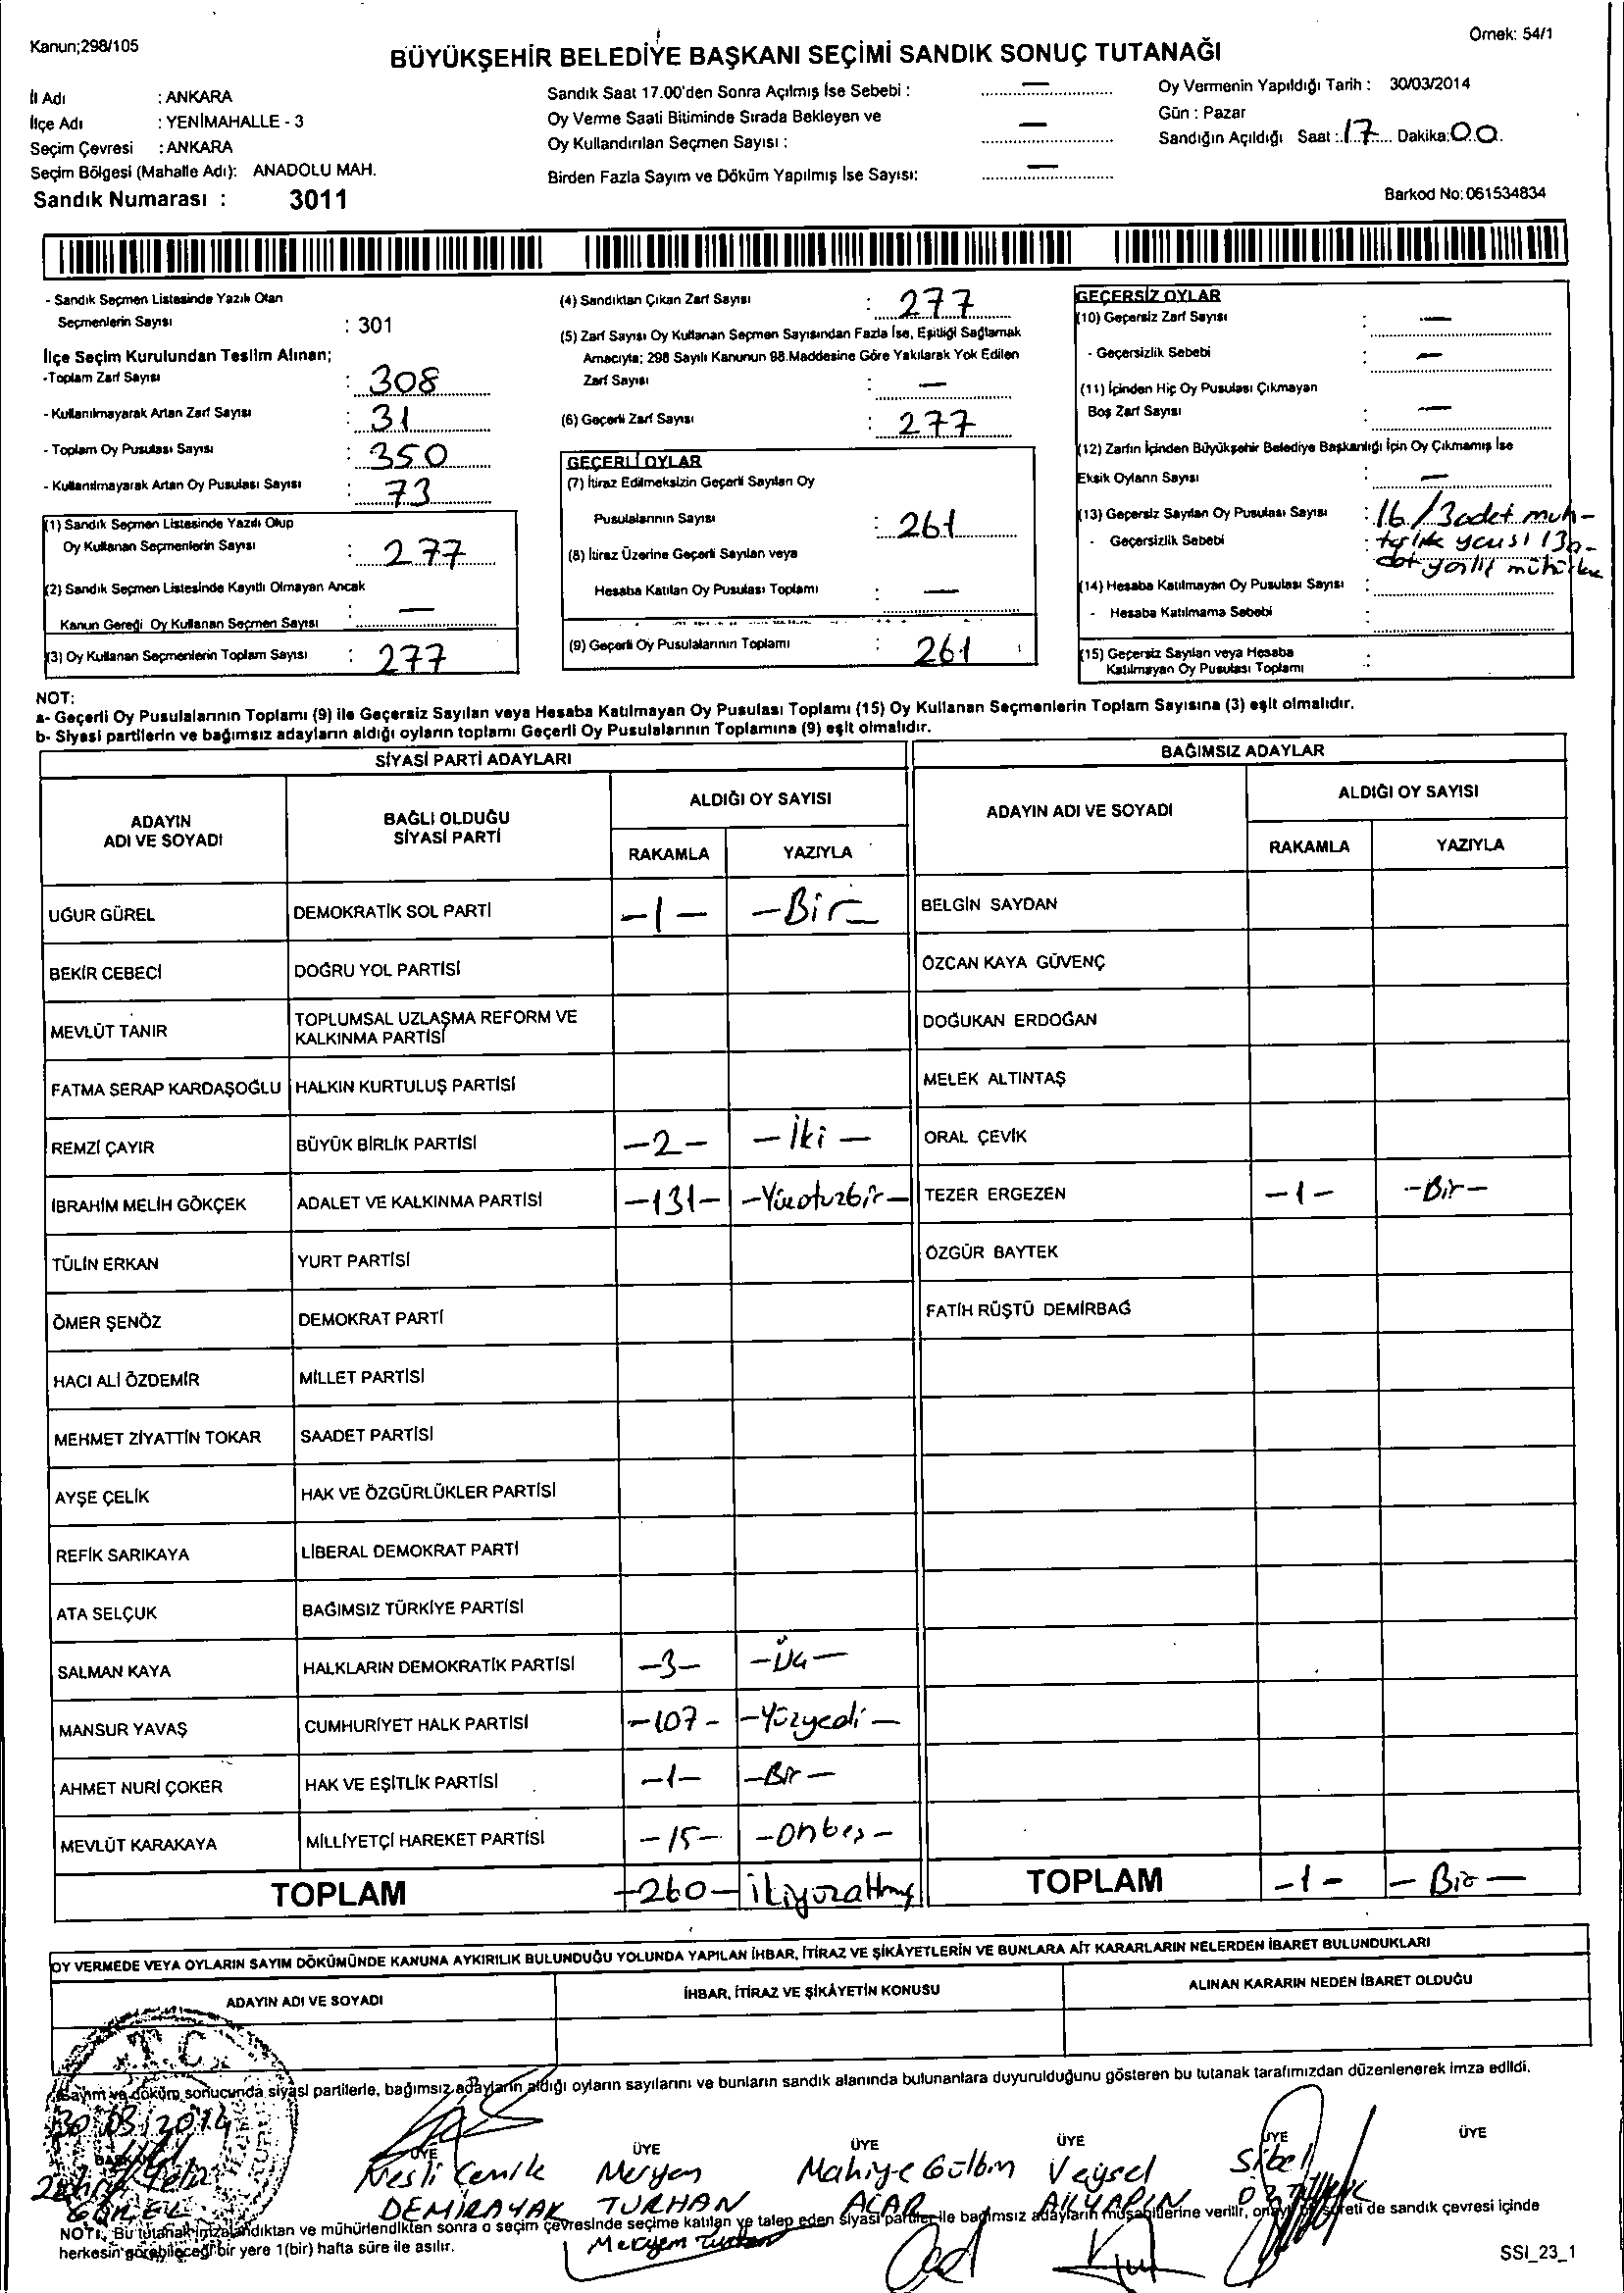 Kanun;298/105
Örnek: 54/1
BÜYÜKŞEHİR BELEDİYE BAŞKANI SEÇİMİ SANDIK SONUÇ TUTANAĞI
İl Adı : ANKARA
İlçe Adı : YENİMAHALLE - 3
Seçim Çevresi : ANKARA
Seçim Bölgesi (Mahalle Adı): ANADOLU MAH.
Sandık Numarası : 3011
Sandık Saat 17.00'den Sonra Açılmış İse Sebebi : —
Oy Verme Saati Bitiminde Sırada Bekleyen ve
Oy Kullandırılan Seçmen Sayısı : —
Birden Fazla Sayım ve Döküm Yapılmış İse Sayısı: —
Oy Vermenin Yapıldığı Tarih : 30/03/2014
Gün : Pazar
Sandığın Açıldığı Saat : 17 Dakika: 00
Barkod No: 061534834
- Sandık Seçmen Listesinde Yazılı Olan
Seçmenlerin Sayısı : 301
İlçe Seçim Kurulundan Teslim Alınan;
-Toplam Zarf Sayısı : 308
- Kullanılmayarak Artan Zarf Sayısı : 31
- Toplam Oy Pusulası Sayısı : 350
- Kullanılmayarak Artan Oy Pusulası Sayısı : 73
(1) Sandık Seçmen Listesinde Yazılı Olup
Oy Kullanan Seçmenlerin Sayısı : 277
(2) Sandık Seçmen Listesinde Kayıtlı Olmayan Ancak
Kanun Gereği Oy Kullanan Seçmen Sayısı : —
(3) Oy Kullanan Seçmenlerin Toplam Sayısı : 277
(4) Sandıktan Çıkan Zarf Sayısı : 277
(5) Zarf Sayısı Oy Kullanan Seçmen Sayısından Fazla İse, Eşitliği Sağlamak
Amacıyla; 298 Sayılı Kanunun 98.Maddesine Göre Yakılarak Yok Edilen
Zarf Sayısı : —
(6) Geçerli Zarf Sayısı : 277
GEÇERLİ OYLAR
(7) İtiraz Edilmeksizin Geçerli Sayılan Oy
Pusulalarının Sayısı : 261
(8) İtiraz Üzerine Geçerli Sayılan veya
Hesaba Katılan Oy Pusulası Toplamı : —
(9) Geçerli Oy Pusulalarının Toplamı : 261
GEÇERSİZ OYLAR
(10) Geçersiz Zarf Sayısı : —
- Geçersizlik Sebebi : —
(11) İçinden Hiç Oy Pusulası Çıkmayan
Boş Zarf Sayısı : —
(12) Zarfın İçinden Büyükşehir Belediye Başkanlığı İçin Oy Çıkmamış İse
Eksik Oyların Sayısı : —
(13) Geçersiz Sayılan Oy Pusulası Sayısı : 16 / 3 adet muh-
- Geçersizlik Sebebi :
(14) Hesaba Katılmayan Oy Pusulası Sayısı :
- Hesaba Katılmama Sebebi :
(15) Geçersiz Sayılan veya Hesaba
Katılmayan Oy Pusulası Toplamı :
NOT:
a- Geçerli Oy Pusulalarının Toplamı (9) ile Geçersiz Sayılan veya Hesaba Katılmayan Oy Pusulası Toplamı (15) Oy Kullanan Seçmenlerin Toplam Sayısına (3) eşit olmalıdır.
b- Siyasi partilerin ve bağımsız adayların aldığı oyların toplamı Geçerli Oy Pusulalarının Toplamına (9) eşit olmalıdır.
SİYASİ PARTİ ADAYLARI
BAĞIMSIZ ADAYLAR
ADAYIN
ADI VE SOYADI
BAĞLI OLDUĞU
SİYASİ PARTİ
ALDIĞI OY SAYISI
RAKAMLA YAZIYLA
ADAYIN ADI VE SOYADI
ALDIĞI OY SAYISI
RAKAMLA YAZIYLA
UĞUR GÜREL DEMOKRATİK SOL PARTİ -1- -Bir- BELGİN SAYDAN
BEKİR CEBECİ DOĞRU YOL PARTİSİ ÖZCAN KAYA GÜVENÇ
MEVLÜT TANIR TOPLUMSAL UZLAŞMA REFORM VE
KALKINMA PARTİSİ DOĞUKAN ERDOĞAN
FATMA SERAP KARDAŞOĞLU HALKIN KURTULUŞ PARTİSİ MELEK ALTINTAŞ
REMZİ ÇAYIR BÜYÜK BİRLİK PARTİSİ -2- -İki- ORAL ÇEVİK
İBRAHİM MELİH GÖKÇEK ADALET VE KALKINMA PARTİSİ -131- -Yüzotuzbir- TEZER ERGEZEN -1- -Bir-
TÜLİN ERKAN YURT PARTİSİ ÖZGÜR BAYTEK
ÖMER ŞENÖZ DEMOKRAT PARTİ FATİH RÜŞTÜ DEMİRBAĞ
HACI ALİ ÖZDEMİR MİLLET PARTİSİ
MEHMET ZİYATTİN TOKAR SAADET PARTİSİ
AYŞE ÇELİK HAK VE ÖZGÜRLÜKLER PARTİSİ
REFİK SARIKAYA LİBERAL DEMOKRAT PARTİ
ATA SELÇUK BAĞIMSIZ TÜRKİYE PARTİSİ
SALMAN KAYA HALKLARIN DEMOKRATİK PARTİSİ -3- -Üç-
MANSUR YAVAŞ CUMHURİYET HALK PARTİSİ -107- -Yüzyedi-
AHMET NURİ ÇOKER HAK VE EŞİTLİK PARTİSİ -1- -Bir-
MEVLÜT KARAKAYA MİLLİYETÇİ HAREKET PARTİSİ -15- -Onbeş-
TOPLAM -260- ikiyüzaltmış TOPLAM -1- -Bir-
OY VERMEDE VEYA OYLARIN SAYIM DÖKÜMÜNDE KANUNA AYKIRILIK BULUNDUĞU YOLUNDA YAPILAN İHBAR, İTİRAZ VE ŞİKÂYETLERİN VE BUNLARA AİT KARARLARIN NELERDEN İBARET BULUNDUKLARI
ADAYIN ADI VE SOYADI İHBAR, İTİRAZ VE ŞİKÂYETİN KONUSU ALINAN KARARIN NEDEN İBARET OLDUĞU
T.C.
Sayım ve döküm sonucunda siyasi partilerle, bağımsız adayların aldığı oyların sayılarını ve bunların sandık alanında bulunanlara duyurulduğunu gösteren bu tutanak tarafımızdan düzenlenerek imza edildi.
30/03/2014
BAŞKAN ÜYE ÜYE ÜYE ÜYE ÜYE ÜYE
Nesli Cenik Meryem Mahiye Gülbin Veysel Sibel
GÜREL DEMİRAYAK TURHAN ACAR
NOT: Bu tutanak imzalandıktan ve mühürlendikten sonra o seçim çevresinde seçime katılan ve talep eden siyasi partiler ile bağımsız adayların müşahitlerine verilir, onaylı bir sureti de sandık çevresi içinde
herkesin görebileceği bir yere 1(bir) hafta süre ile asılır.
Meryem Turhan
SSI_23_1